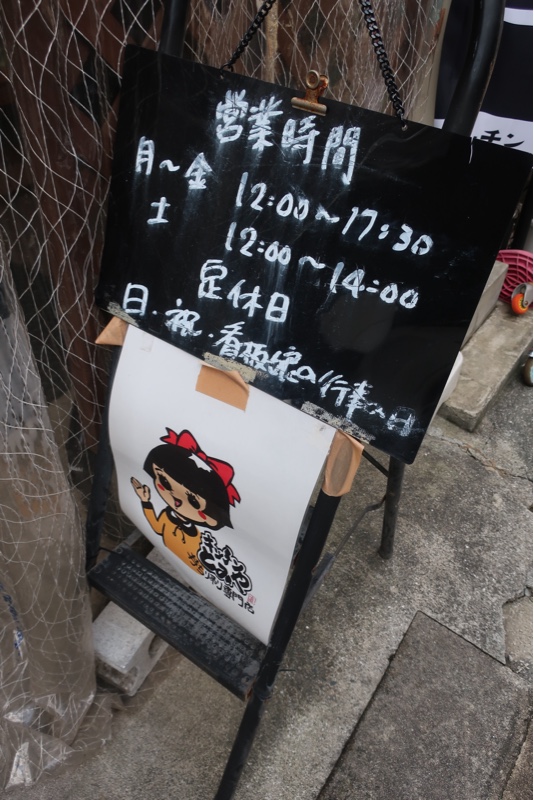 営業時間
月～金 12:00～17:30
土 12:00～14:00
定休日
日・祝・看板娘の行事の日
専門店
チン